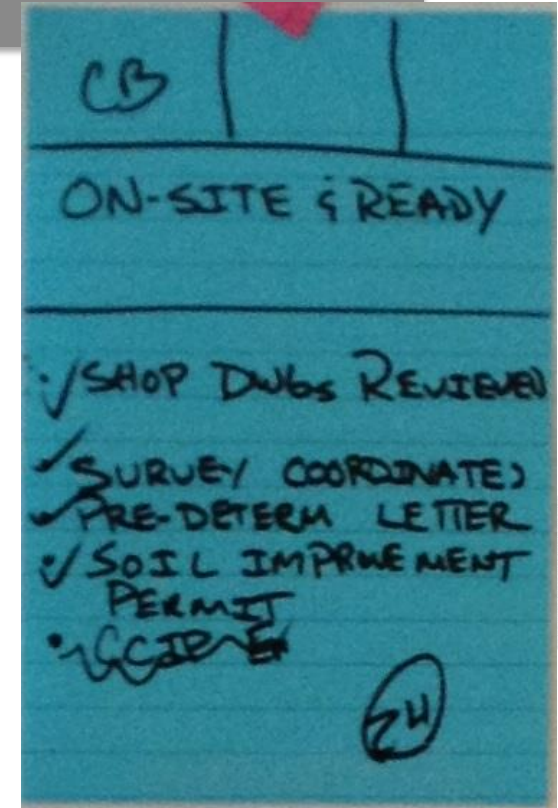 CB
ON-SITE & READY
✓ SHOP DWGs REVIEWED
✓ SURVEY COORDINATES
✓ PRE-DETERM LETTER
✓ SOIL IMPROVEMENT
PERMIT
24